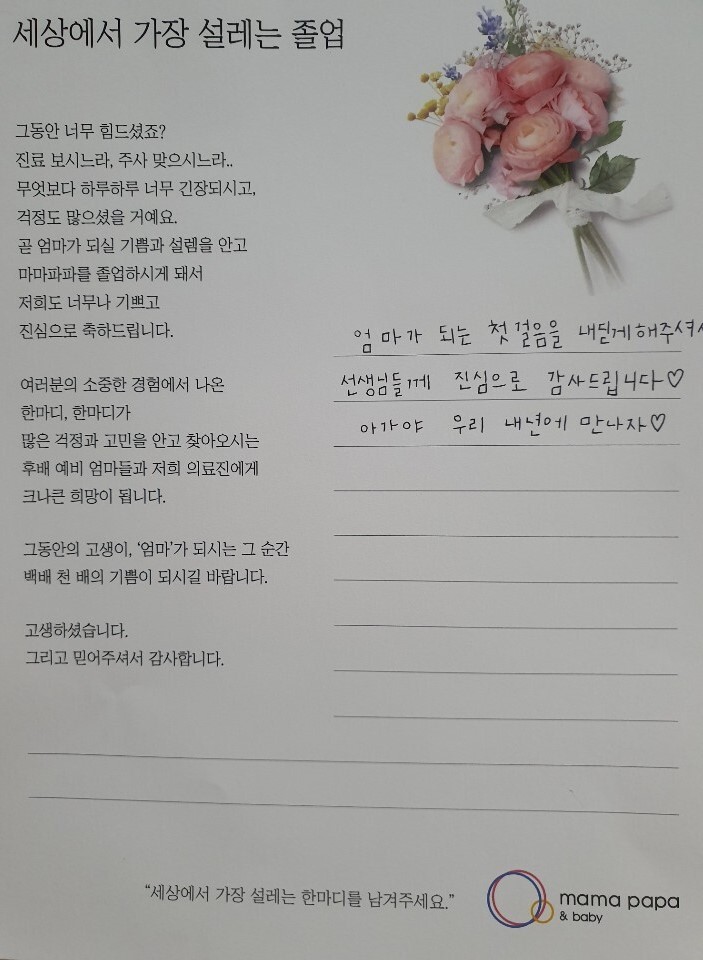 세상에서 가장 설레는 졸업
그동안 너무 힘드셨죠?
진료 보시느라, 주사 맞으시느라..
무엇보다 하루하루 너무 긴장되시고,
걱정도 많으셨을 거예요.
곧 엄마가 되실 기쁨과 설렘을 안고
마마파파를 졸업하시게 돼서
저희도 너무나 기쁘고
진심으로 축하드립니다.
여러분의 소중한 경험에서 나온
한마디, 한마디가
많은 걱정과 고민을 안고 찾아오시는
후배 예비 엄마들과 저희 의료진에게
크나큰 희망이 됩니다.
그동안의 고생이, '엄마'가 되시는 그 순간
백배 천 배의 기쁨이 되시길 바랍니다.
고생하셨습니다.
그리고 믿어주셔서 감사합니다.
엄마가 되는 첫 걸음을 내딛게해주셔서
선생님들께 진심으로 감사드립니다♡
아가야 우리 내년에 만나자♡
"세상에서 가장 설레는 한마디를 남겨주세요."
mama papa
& baby